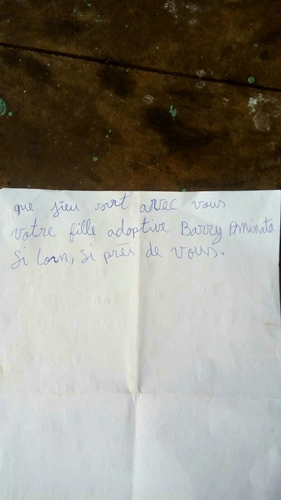 que Dieu soit avec vous
votre fille adoptive Barry Aminata
Si loin, si près de vous.